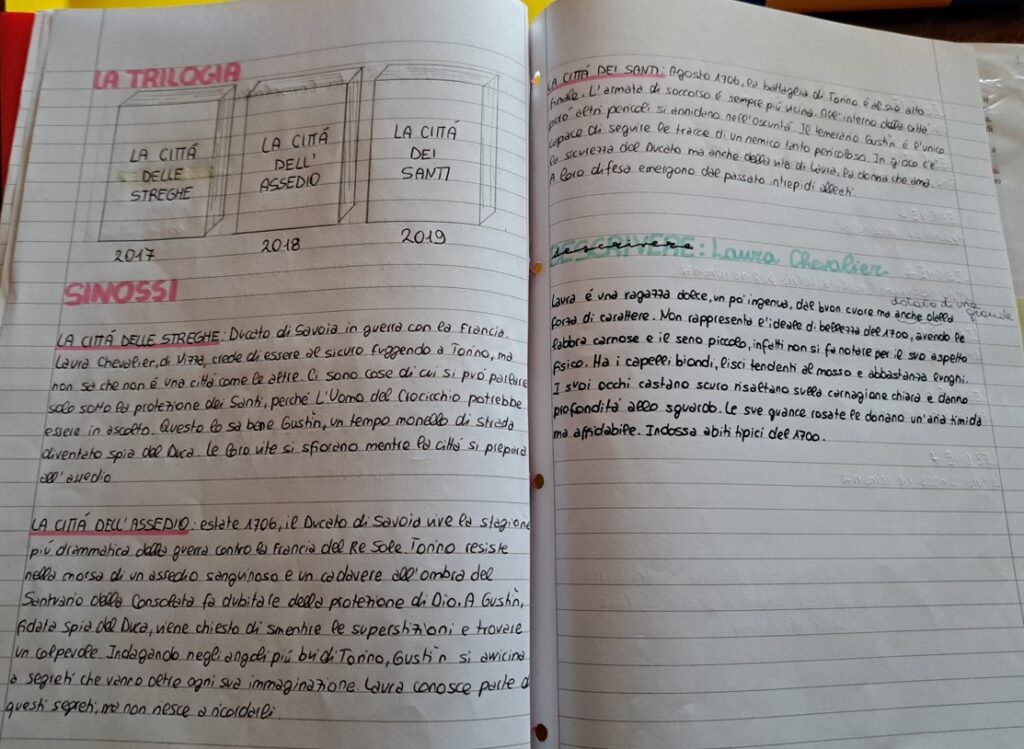 LA TRILOGIA
LA CITTÁ
DELLE
STREGHE
LA CITTÁ
DELL'
ASSEDIO
LA CITTÁ
DEI
SANTI
2017
2018
2019
SINOSSI
LA CITTÁ DELLE STREGHE: Ducato di Savoia in guerra con la Francia.
Laura Chevalier, di Nizza, crede di essere al sicuro fuggendo a Torino, ma
non sa che non é una città come le altre. Ci sono cose di cui si può parlare
solo sotto la protezione dei Santi, perché L'Uomo del Crocicchio potrebbe
essere in ascolto. Questo lo sa bene Gustìn, un tempo monello di strada
diventato spia del Duca. Le loro vite si sfiorano mentre la città si prepara
all'assedio
LA CITTÁ DELL'ASSEDIO: estate 1706, il Ducato di Savoia vive la stagione
più drammatica della guerra contro la Francia del Re Sole. Torino resiste
nella morsa di un assedio sanguinoso e un cadavere all'ombra del
Santuario della Consolata fa dubitare della protezione di Dio. A Gustìn,
fidata spia del Duca, viene chiesto di smentire le superstizioni e trovare
un colpevole. Indagando negli angoli più bui di Torino, Gustìn si avvicina
a segreti che vanno oltre ogni sua immaginazione. Laura conosce parte di
questi segreti, ma non riesce a ricordarli
LA CITTÁ DEI SANTI: Agosto 1706, la battaglia di Torino é al suo atto
finale. L'armata di soccorso é sempre più vicina. All'interno della città
però altri pericoli si annidano nell'oscurità. Il temerario Gustìn é l'unico
capace di seguire le tracce di un nemico tanto pericoloso. In gioco c'é
la sicurezza del Ducato ma anche della vita di Laura, la donna che ama.
A loro difesa emergono dal passato intrepidi alleati.
DESCRIVERE: Laura Chevalier
dotata di una grande
Laura é una ragazza dolce, un po' ingenua, dal buon cuore ma anche della
forza di carattere. Non rappresenta l'ideale di bellezza del 1700, avendo le
labbra carnose e il seno piccolo, infatti non si fa notare per il suo aspetto
fisico. Ha i capelli biondi, lisci tendenti al mosso e abbastanza lunghi.
I suoi occhi castano scuro risaltano sulla carnagione chiara e danno
profondità allo sguardo. Le sue guance rosate le donano un'aria timida
ma affidabile. Indossa abiti tipici del 1700.